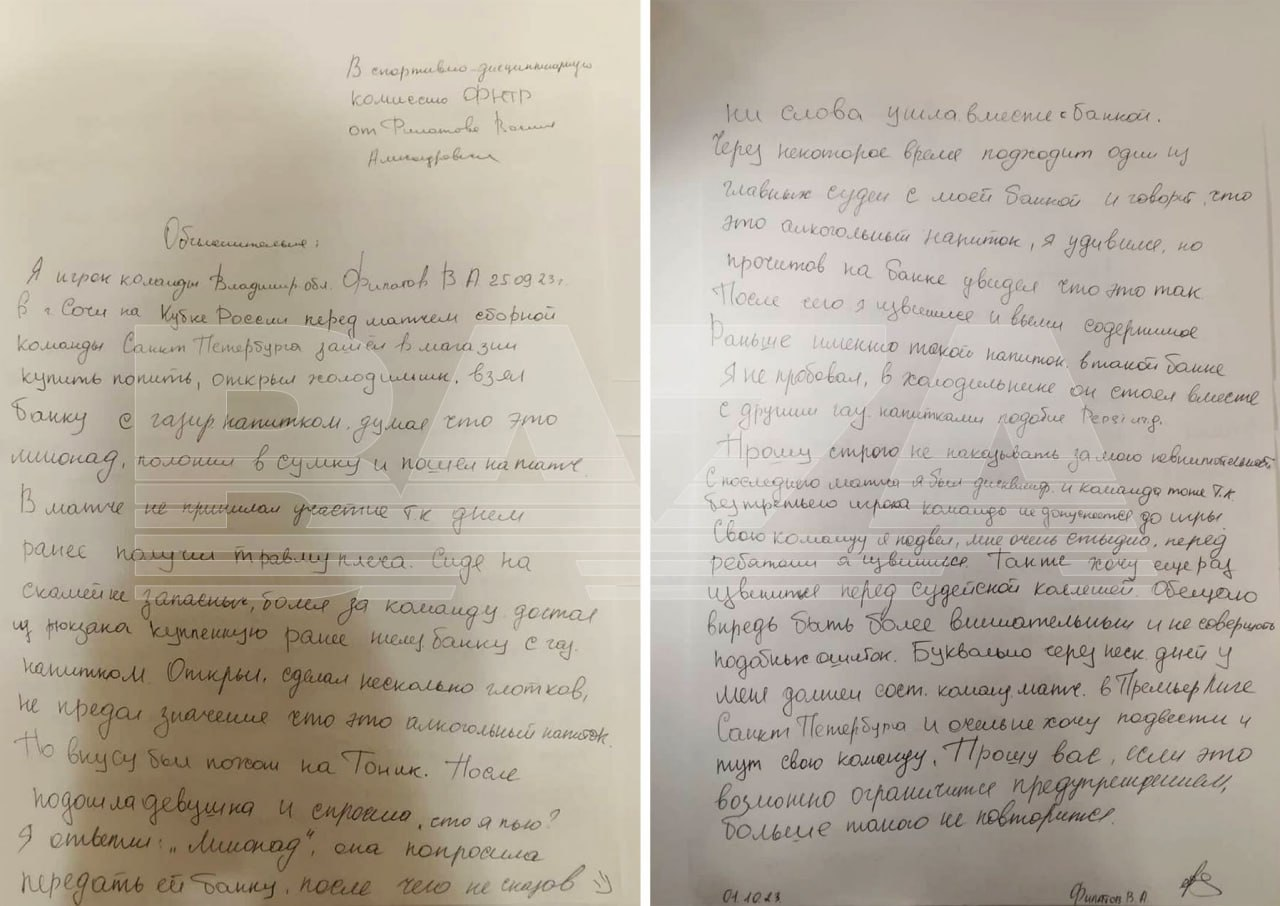 В спортивно-дисциплинарную
комиссию ФНТР
от Филатова
Александровича
Объяснительная:
Я игрок команды Владимир обл. Филатов В А 25.09 23г.
в г. Сочи на Кубке России перед матчем сборной
команды Санкт Петербурга зашёл в магазин
купить попить, открыл холодильник, взял
банку с газир напитком. думая что это
лимонад, положил в сумку и пошел на матч.
В матче не принимал участие т.к днем
ранее получил травму плеча. Сидя на
скамейке запасных, болея за команду достал
из рюкзака купленную ранее желез. банку с газ.
напитком. Открыл, сделал несколько глотков,
не предал значения что это алкогольный напиток.
По вкусу был похож на Тоник. После
подошла девушка и спросила, что я пью?
Я ответил: „Лимонад", она попросила
передать ей банку, после чего не сказав
ни слова ушла вместе с банкой.
Через некоторое время подходит один из
главных судей с моей банкой и говорит, что
это алкогольный напиток, я удивился, но
прочитав на банке увидел что это так.
После чего я извинился и вылил содержимое
Раньше именно такой напиток. в такой банке
я не пробовал, в холодильнике он стоял вместе
с другими газ. напитками подобие Pepsi итд.
Прошу строго не наказывать за мою невнимательность
С последнего матча я был дисквалиф. и команда тоже т.к.
без третьего игрока команда не допускается до игры
Свою команду я подвел, мне очень стыдно, перед
ребятами я извинился. Также хочу еще раз
извинится перед судейской коллегией. Обещаю
впредь быть более внимательным и не совершать
подобных ошибок. Буквально через неск. дней у
меня должен сост. команд матч. в Премьер Лиге
Санкт Петербурга и очень не хочу подвести и
тут свою команду. Прошу вас, если это
возможно ограничится предупреждением,
больше такого не повторится.
01.10.23 Филатов В.А.
BAZA